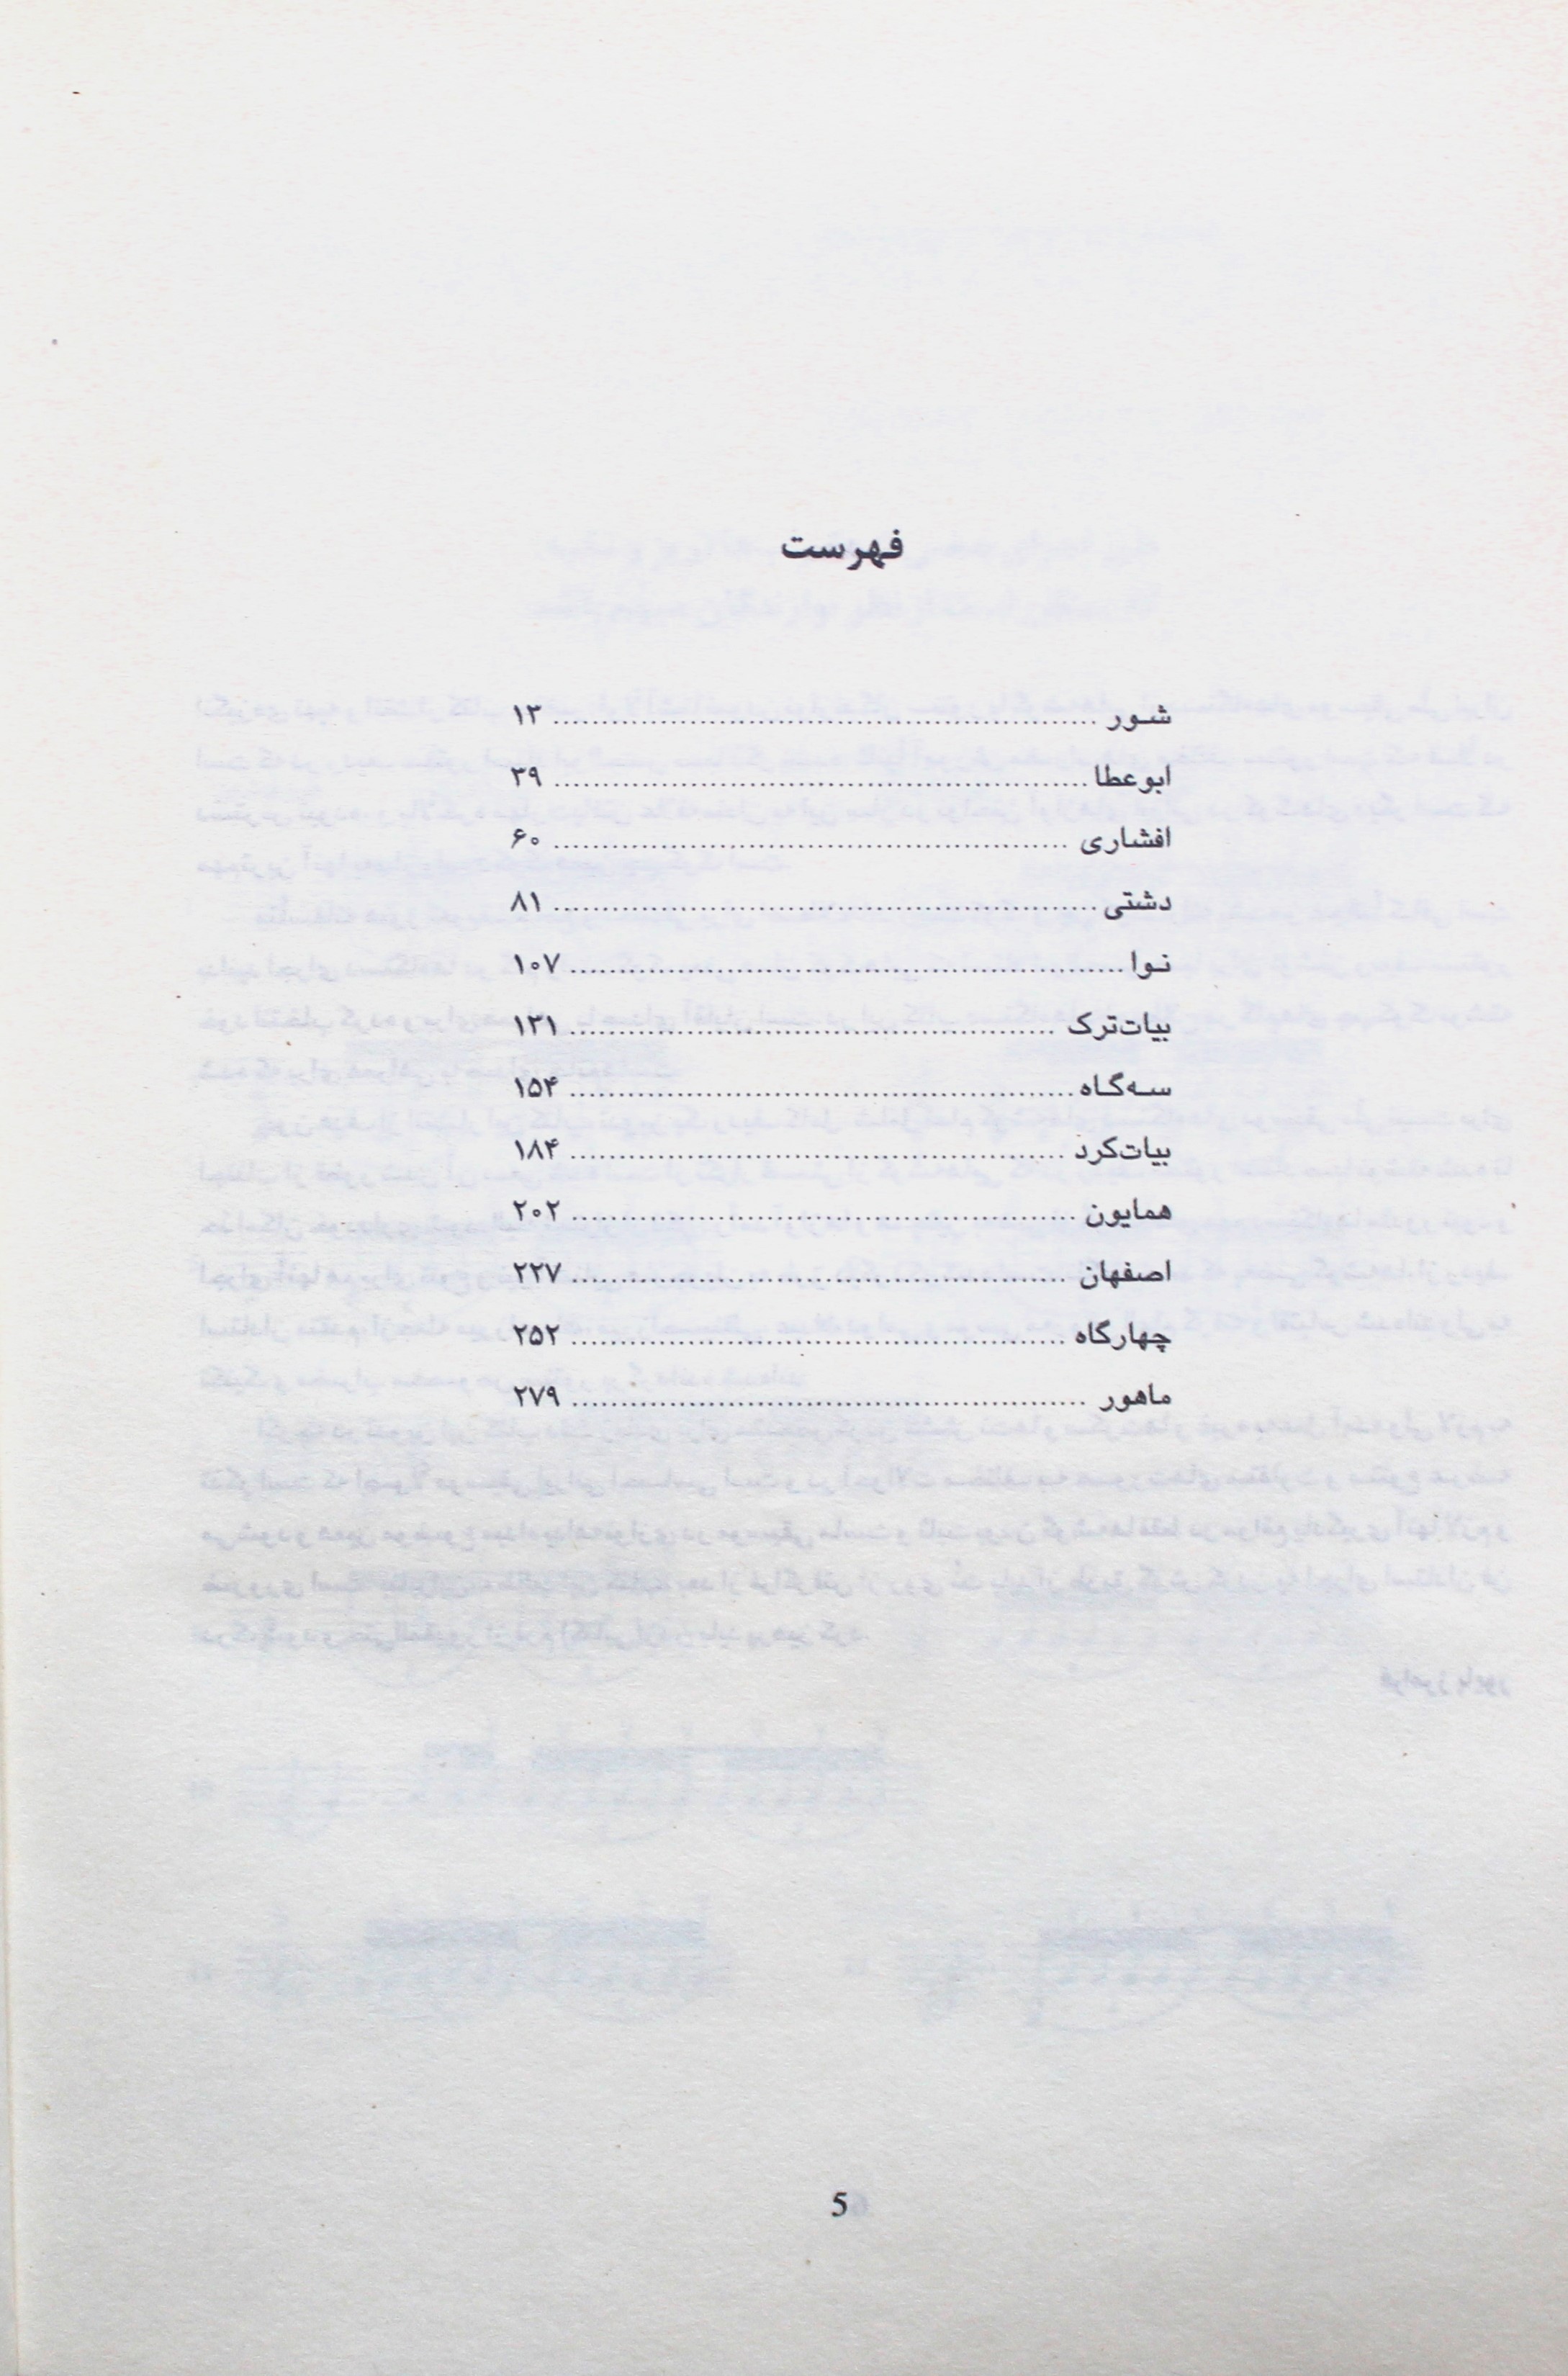 فهرست
شور ........................................................ ۱۳
ابوعطا ........................................................ ۳۹
افشاری ........................................................ ۶۰
دشتی ........................................................ ۸۱
نوا ........................................................ ۱۰۷
بیات‌ترک ........................................................ ۱۳۱
سه‌گاه ........................................................ ۱۵۴
بیات‌کرد ........................................................ ۱۸۴
همایون ........................................................ ۲۰۲
اصفهان ........................................................ ۲۲۷
چهارگاه ........................................................ ۲۵۲
ماهور ........................................................ ۲۷۹
5